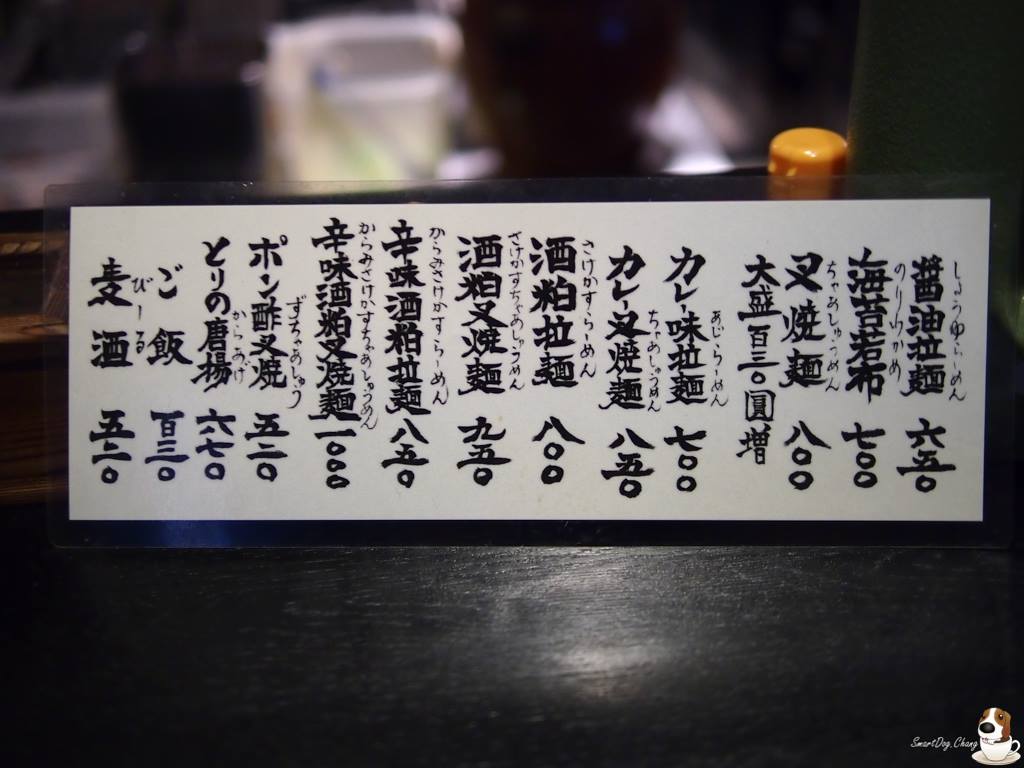 醤油拉麺 しょうゆらーめん 六五〇
海苔若布 のりわかめ 七〇〇
叉焼麺 ちゃあしゅうめん 八〇〇
大盛百三〇圓増
カレー味拉麺 あじらーめん 七〇〇
カレー叉焼麺 ちゃあしゅうめん 八五〇
酒粕拉麺 さけかすらーめん 八〇〇
酒粕叉焼麺 さけかすちゃあしゅうめん 九五〇
辛味酒粕拉麺 からみさけかすらーめん 八五〇
辛味酒粕叉焼麺 からみさけかすちゃあしゅうめん 一〇〇〇
ポン酢叉焼 ずちゃあしゅう 五二〇
とりの唐揚 からあげ 六七〇
ご飯 百三〇
麦酒 びーる 五二〇
SmartDog.Chang